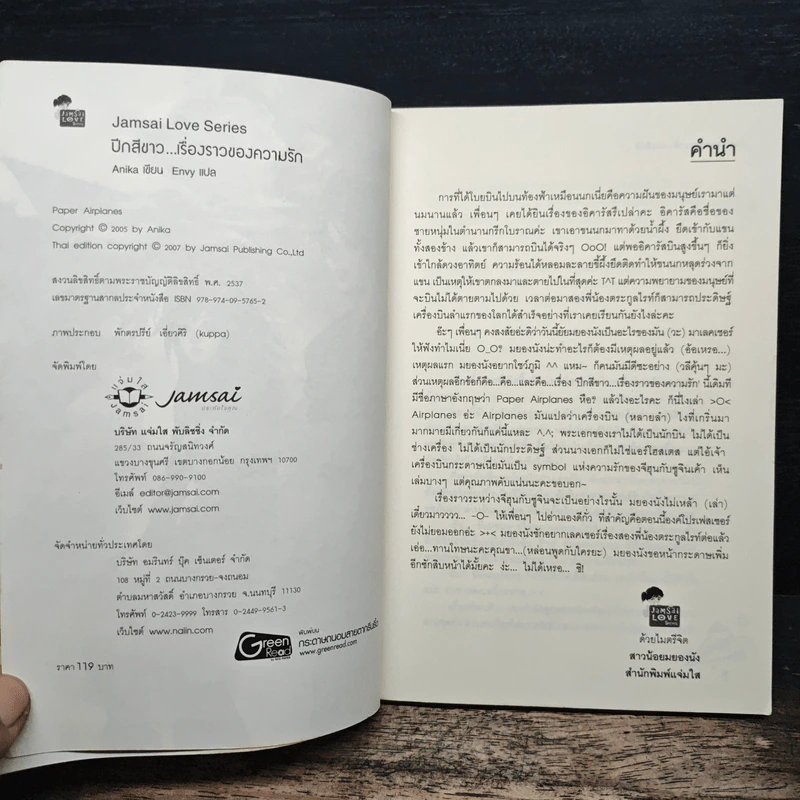 JAMSAI
LOVE
SERIES
Jamsai Love Series
ปีกสีขาว...เรื่องราวของความรัก
Anika เขียน Envy แปล
Paper Airplanes
Copyright © 2005 by Anika
Thai edition copyright © 2007 by Jamsai Publishing Co.,Ltd
สงวนลิขสิทธิ์ตามพระราชบัญญัติลิขสิทธิ์ พ.ศ. 2537
เลขมาตรฐานสากลประจำหนังสือ ISBN 978-974-09-5765-2
ภาพประกอบ พักตรปรีย์ เอี่ยวศิริ (kuppa)
จัดพิมพ์โดย
แจ่มใส
Jamsai
jamsai
บริษัท แจ่มใส พับลิชชิ่ง จำกัด
285/33 ถนนจรัญสนิทวงศ์
แขวงบางขุนศรี เขตบางกอกน้อย กรุงเทพฯ 10700
โทรศัพท์ 086-990-9100
อีเมล์ editor@jamsai.com
เว็บไซต์ www.jamsai.com
จัดจำหน่ายทั่วประเทศโดย
บริษัท อมรินทร์ บุ๊ค เซ็นเตอร์ จำกัด
108 หมู่ที่ 2 ถนนบางกรวย-จงถนอม
ตำบลมหาสวัสดิ์ อำเภอบางกรวย จ.นนทบุรี 11130
โทรศัพท์ 0-2423-9999 โทรสาร 0-2449-9561-3
เว็บไซต์ www.naiin.com
Green
Read
พิมพ์บน
กระดาษถนอมสายตากรีนรี้ด
www.greenread.com
ราคา 119 บาท
คำนำ
การที่ได้โบยบินไปบนท้องฟ้าเหมือนนกเนี่ยคือความฝันของมนุษย์เรามาแต่
นมนานแล้ว เพื่อนๆ เคยได้ยินเรื่องของอิคารัสรึเปล่าคะ อิคารัสคือชื่อของ
ชายหนุ่มในตำนานกรีกโบราณค่ะ เขาเอาขนนกมาทาด้วยน้ำผึ้ง ยึดเข้ากับแขน
ทั้งสองข้าง แล้วเขาก็สามารถบินได้จริงๆ OoO! แต่พออิคารัสบินสูงขึ้นๆ ก็ยิ่ง
เข้าใกล้ดวงอาทิตย์ ความร้อนได้หลอมละลายขี้ผึ้งยึดติดทำให้ขนนกหลุดร่วงจาก
แขน เป็นเหตุให้เขาตกลงมาและตายไปในที่สุดค่ะ T^T แต่ความพยายามของมนุษย์ที่
จะบินไม่ได้ตายตามไปด้วย เวลาต่อมาสองพี่น้องตระกูลไรท์ก็สามารถประดิษฐ์
เครื่องบินลำแรกของโลกได้สำเร็จอย่างที่เราเคยเรียนกันยังไงล่ะคะ
อ๊ะๆ เพื่อนๆ คงสงสัยอ่ะดิว่าวันนี้ยัยมยองนังเป็นอะไรของมัน (วะ) มาเลคเชอร์
ให้ฟังทำไมเนี่ย O_O? มยองนังน่ะทำอะไรก็ต้องมีเหตุผลอยู่แล้ว (อ้อเหรอ...)
เหตุผลแรก มยองนังอยากโชว์ภูมิ ^^ แหม~ ก็คนมันมีดีซะอย่าง (วลีคุ้นๆ มะ)
ส่วนเหตุผลอีกข้อก็คือ...คือ...และคือ...เรื่อง 'ปีกสีขาว...เรื่องราวของความรัก' นี้เดิมที
มีชื่อภาษาอังกฤษว่า Paper Airplanes หือ? แล้วไงอะไรคะ ก็นี่ไงเล่า >O<
Airplanes อ่ะ Airplanes มันแปลว่าเครื่องบิน (หลายลำ) ไงที่เกริ่นมา
มากมายมีเกี่ยวกันก็แค่นี้แหละ ^.^; พระเอกของเราไม่ได้เป็นนักบิน ไม่ได้เป็น
ช่างเครื่อง ไม่ได้เป็นนักประดิษฐ์ ส่วนนางเอกก็ไม่ใช่แอร์โฮสเตส แต่ไอ้เจ้า
เครื่องบินกระดาษเนี่ยมันเป็น symbol แห่งความรักของจีฮุนกับซูจินเค้า เห็น
เล่มบางๆ แต่คุณภาพคับแน่นนะคะขอบอก~
เรื่องราวระหว่างจีฮุนกับซูจินจะเป็นอย่างไรนั้น มยองนังไม่เหล้า (เล่า)
เดี๋ยวมาวววว... -O- ให้เพื่อนๆ ไปอ่านเองดีกั่ว ที่สำคัญคือตอนนี้องค์โปรเฟสเซอร์
ยังไม่ยอมออกอ่ะ >•< มยองนังชักอยากเลคเชอร์เรื่องสองพี่น้องตระกูลไรท์ต่อแล้ว
เอ่อ...ทานโทษนะคะคุณขา...(หล่อนพูดกับใครยะ) มยองนังขอหน้ากระดาษเพิ่ม
อีกซักสิบหน้าได้มั้ยคะ ง่ะ... ไม่ได้เหรอ... ชิ!
JAMSAI
LOVE
SERIES
ด้วยไมตรีจิต
สาวน้อยมยองนัง
สำนักพิมพ์แจ่มใส